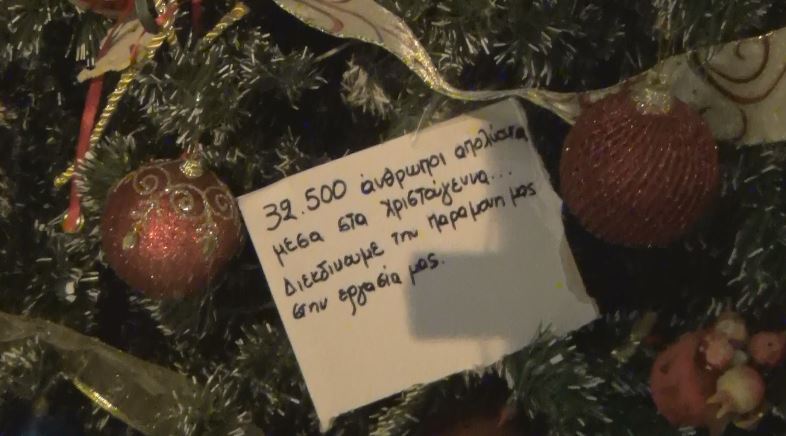 32.500 άνθρωποι απολύονται
μεσα στα Χριστούγεννα...
Διεκδικουμε την παραμονη μας
στην εργασία μας.